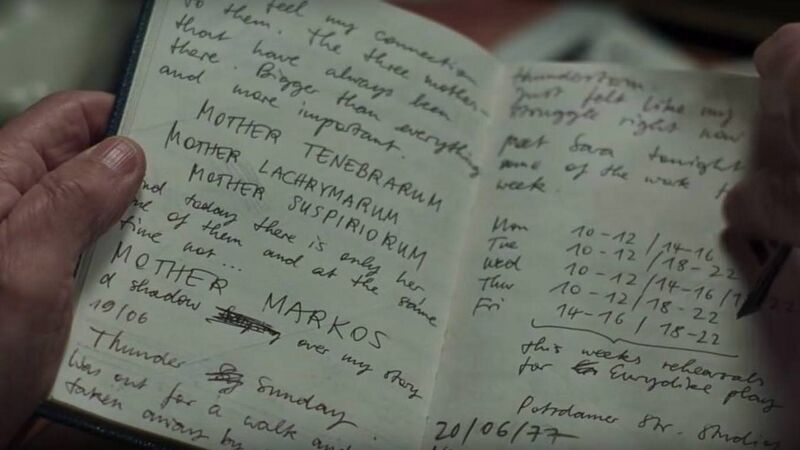 feel my connection
to them. The three mother-
that have always been
there. Bigger than everything
and more important.
MOTHER TENEBRARUM
MOTHER LACHRYMARUM
MOTHER SUSPIRIORUM
and today there is only her,
one of them and at the same
time not...
MOTHER MARKOS
a shadow over my story
19/06
Thunder Sunday.
Was out for a walk and
taken away by
thunderstorm.
Just felt like my
struggle right now
meet Sara tonight
some of the work
week.
Mon 10-12 / 14-16
Tue 10-12 / 18-22
Wed 10-12 / 14-16 / 22
Thur 10-12 / 18-22
Fri 14-16 / 18-22
this weeks rehearsals
for Eurydike play
Potsdamer Str. Studios
20/06/77